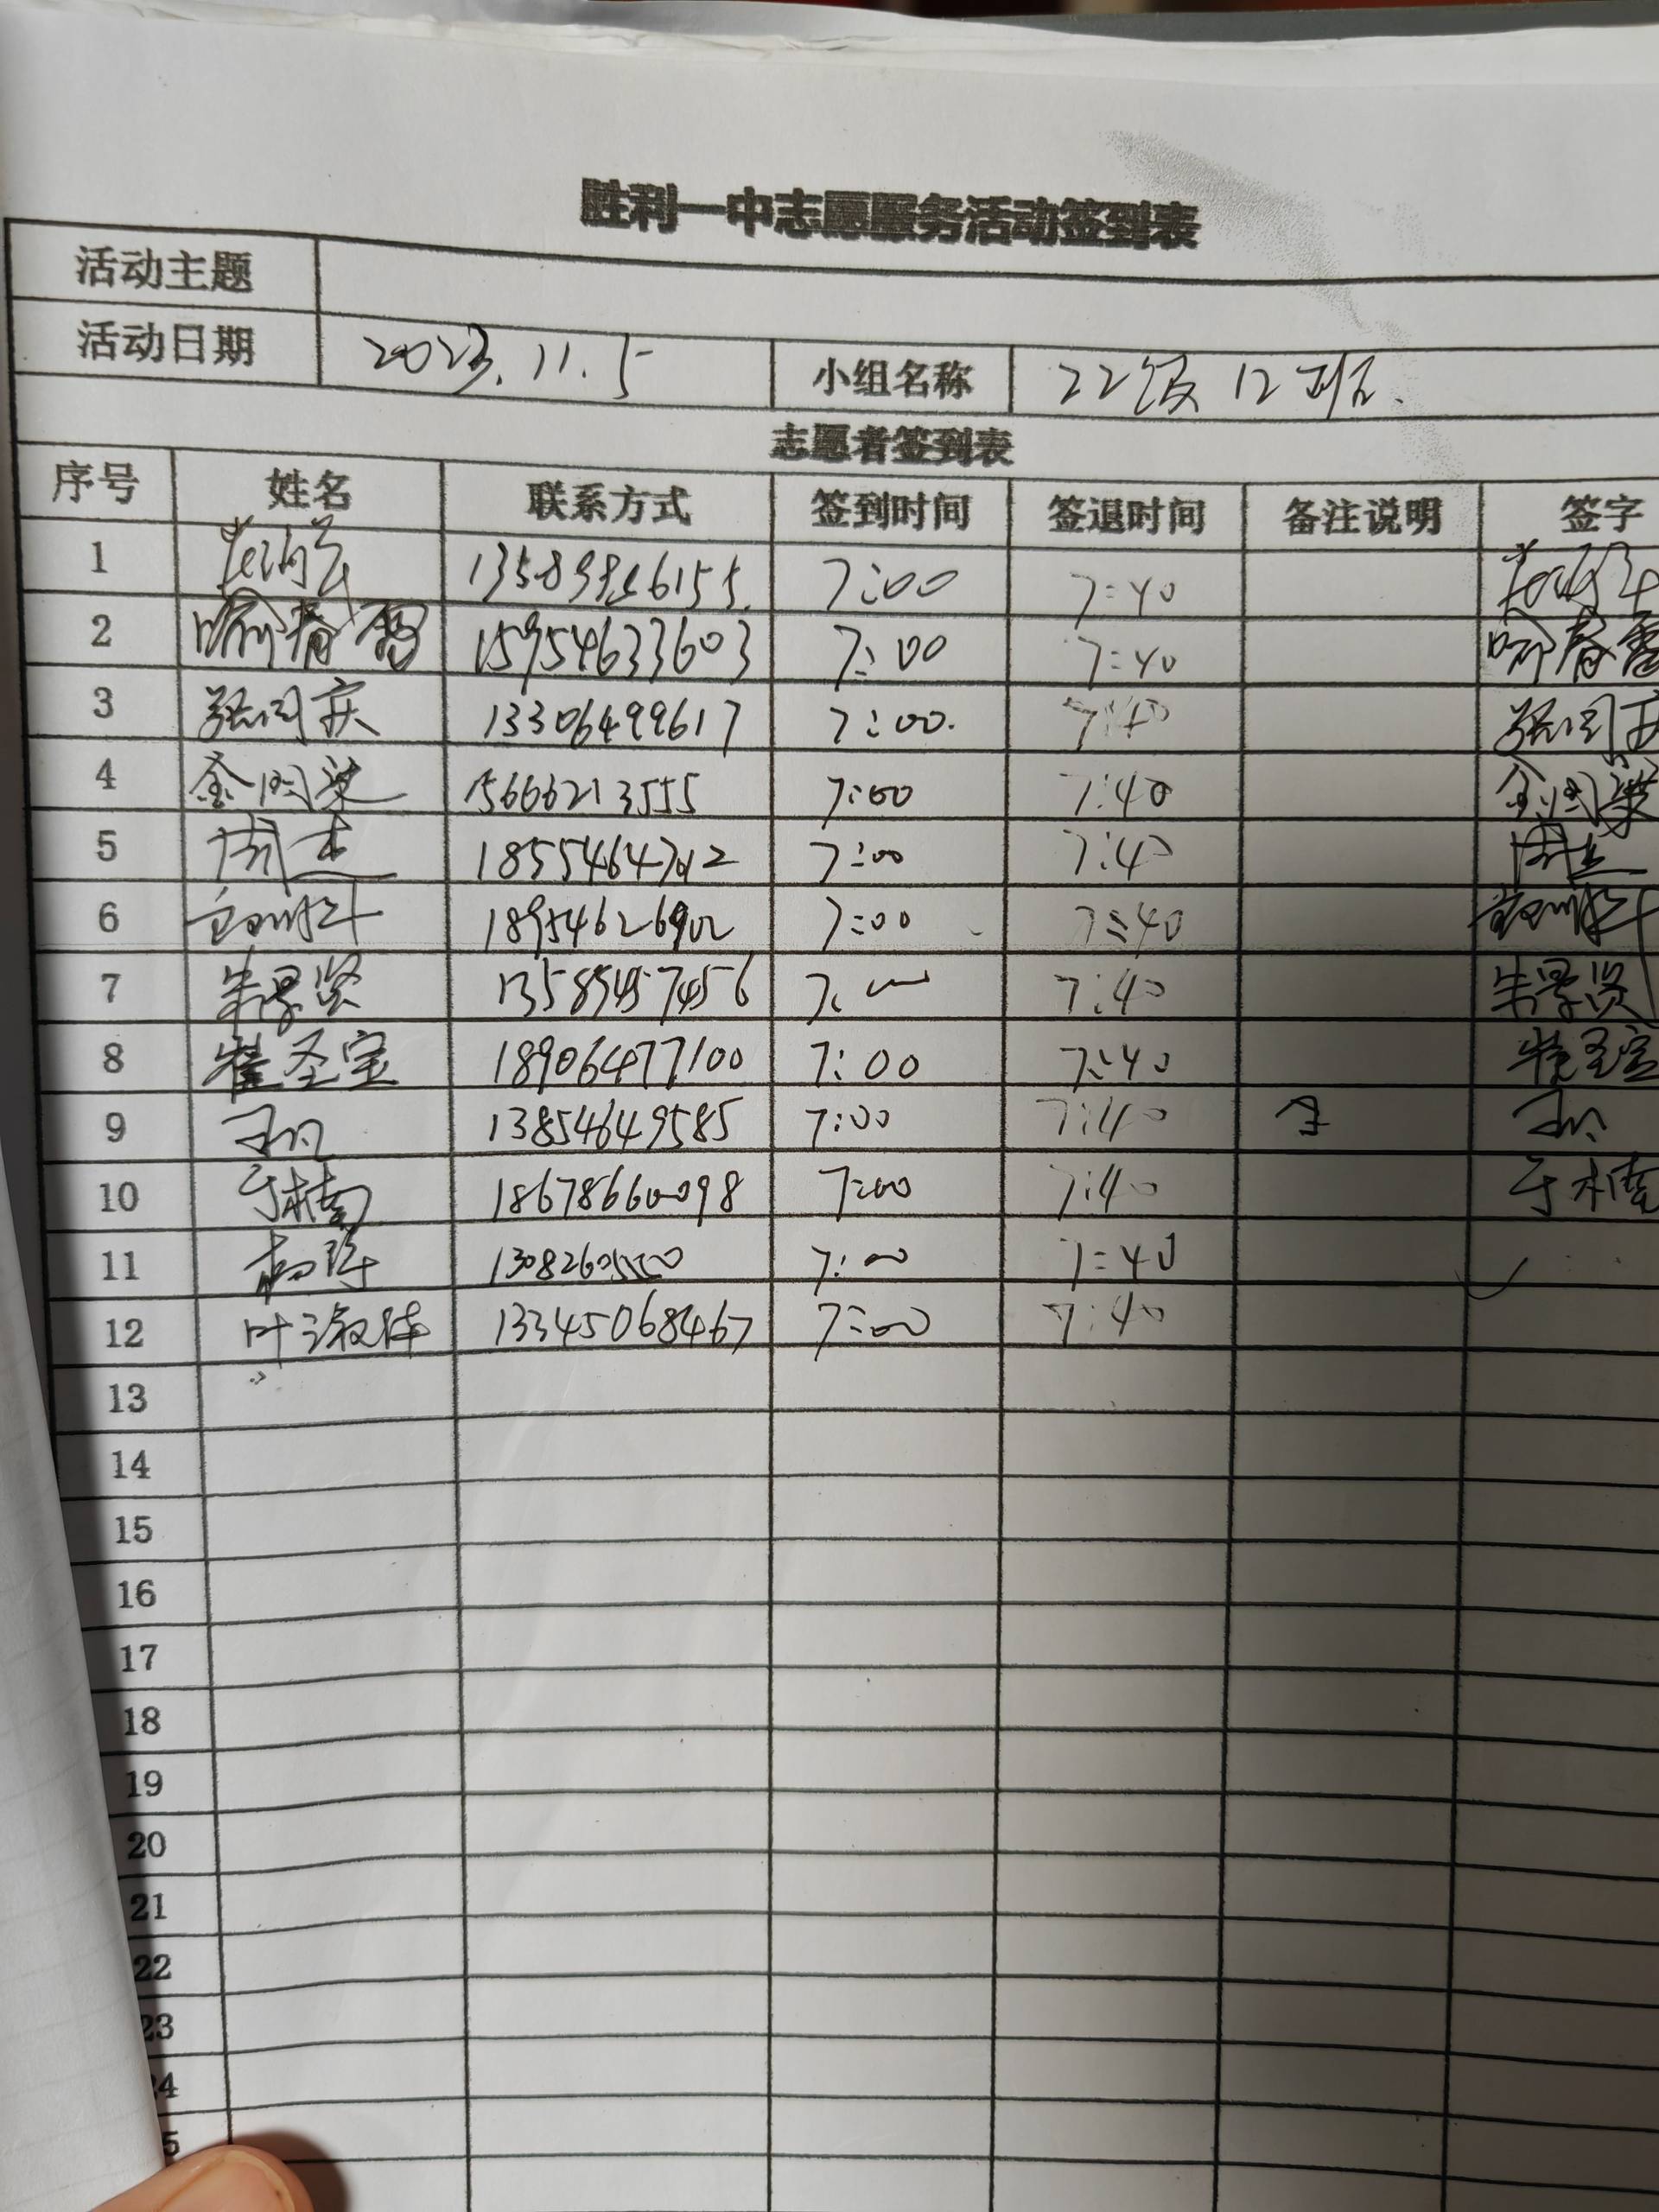 胜利一中志愿服务活动签到表
活动主题
活动日期 2023.11.5 小组名称 22级12班.
志愿者签到表
序号 姓名 联系方式 签到时间 签退时间 备注说明 签字
1 7:00 7:40
2 喻春雷 15954633603 7:00 7:40 喻春雷
3 张同庆 13306499617 7:00. 7:40 张同庆
4 15666213555 7:00 7:40
5 7:00 7:40
6 18954626902 7:00 7:40
7 朱景贤 7:00 7:40 朱景贤
8 崔圣宝 18906477100 7:00 7:40 崔圣宝
9 13854649585 7:00 7:40
10 于楠 18678660098 7:00 7:40 于楠
11 7:00 7:40
12 叶淑伟 13345068467 7:00 7:40
13
14
15
16
17
18
19
20
21
22
23
24
5